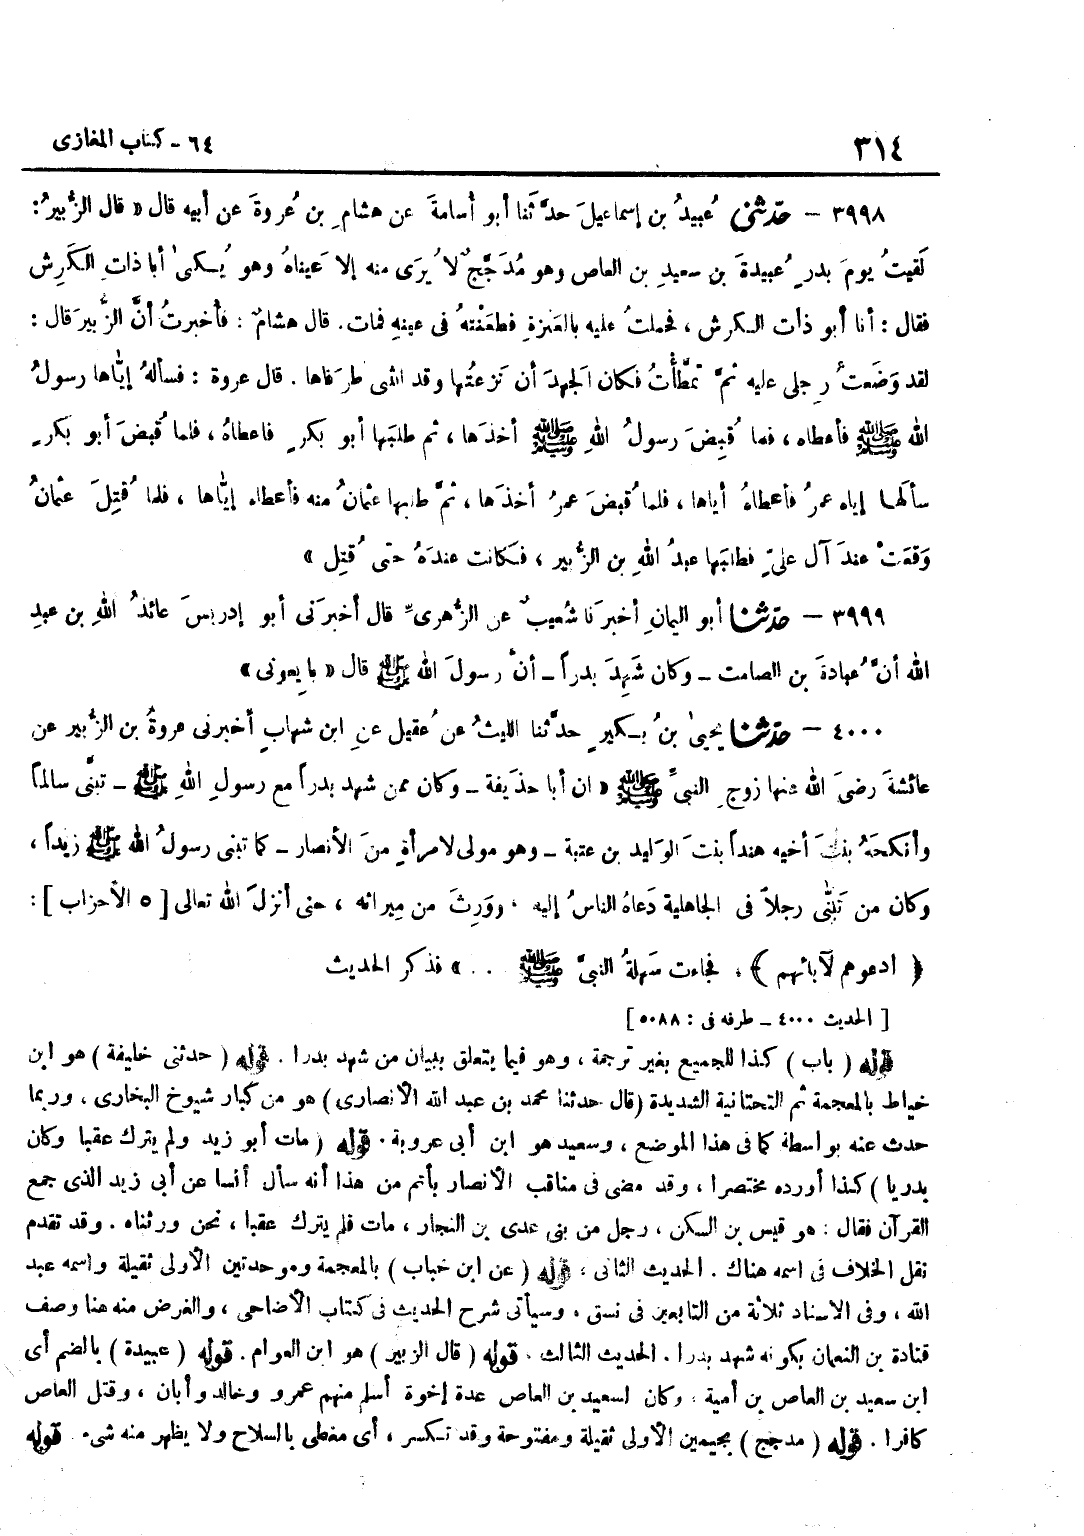 ٣١٤
٦٤ - كتاب المغازى
٣٩٩٨ - حدّثنى عُبيدُ بن إسماعيلَ حدَّثَنا أبو أسامةَ عن هشامِ بن عُروةَ عن أبيه قال « قال الزُّبيرُ :
لَقيتُ يومَ بدرٍ عُبيدةَ بن سعيدِ بن العاص وهو مُدَجَّجٌ لا يُرَى منه إلا عَيناهُ وهو يُسكىٰ أبا ذاتِ الكَرِش
فقال : أنا أبو ذات الكرش ، فحملتُ عليه بالعَنزةِ فطعَنْتهُ فى عينهِ فمات . قال هشامٌ : فأُخبرتُ أنَّ الزُّبيرَ قال :
لقد وَضَعتُ رِجلى عليه ثمَّ تمطَّأتُ فكان الجهدَ أن نَزعتُها وقد انثنى طرَفاها . قال عروة : فسألهُ إيّاها رسولُ
الله ﷺ فأعطاه ، فلما قُبِضَ رسولُ اللهِ ﷺ أخذَها ، ثم طلبَها أبو بكرٍ فاعطاهُ ، فلما قُبضَ أبو بكرٍ
سألها إياه عمرُ فأعطاهُ أياها ، فلما قُبضَ عمرُ أخذَها ، ثمَّ طلبها عثمانُ منه فأعطاه إيّاها ، فلما قُتِلَ عثمانُ
وَقعَتْ عندَ آل علىٍّ فطلبَها عبدُ اللهِ بن الزُّبير ، فكانت عندَهُ حتى قُتِل »
٣٩٩٩ - حدّثنا أبو اليمانِ أخبرَنا شُعيبٌ عن الزُّهرىِّ قال أخبرَنى أبو إدريسَ عائذُ اللهِ بن عبدِ
الله أنَّ عُبادةَ بن الصامت - وكان شَهِدَ بدراً - أنْ رسولَ الله ﷺ قال « بايِعونى »
٤٠٠٠ - حدّثنا يحيىٰ بنُ بكيرٍ حدَّثنا الليثُ عن عُقيل عنِ ابن شهابٍ أخبرنى عروةُ بن الزُّبير عن
عائشةَ رضىَ الله عنها زوجِ النبىِّ ﷺ « ان أبا حذَيفة - وكان ممن شهد بدراً مع رسولِ اللهِ ﷺ - تبنَّى سالماً
وأنكحَهُ بنتَ أخيه هنداً بنتَ الوَليد بن عتبة - وهو مولى لامرأةٍ منَ الأنصار - كما تبنى رسولُ الله ﷺ زيداً ،
وكان من تَبَنّى رجلاً فى الجاهلية دَعاهُ الناسُ إليه . ووَرِثَ من مِيراثه ، حتى أنزلَ الله تعالى [ ٥ الأحزاب ] :
﴿ ادعوهم لآبائهم ﴾ ، فجاءت سَهلةُ النبىَّ ﷺ . . » فذكر الحديث
[ الحديث ٤٠٠٠ - طرفه فى : ٥٠٨٨ ]
قوله ( باب ) كذا للجميع بغير ترجمة ، وهو فيما يتعلق ببيان من شهد بدرا . قوله ( حدثنى خليفة ) هو ابن
خياط بالمعجمة ثم التحتانية الشديدة ( قال حدثنا محمد بن عبد الله الأنصارى ) هو من كبار شيوخ البخارى ، وربما
حدث عنه بواسطة كما فى هذا الموضع ، وسعيد هو ابن أبى عروبة . قوله ( مات أبو زيد ولم يترك عقبا وكان
بدريا ) كذا أورده مختصرا ، وقد مضى فى مناقب الأنصار بأتم من هذا أنه سأل أنسا عن أبى زيد الذى جمع
القرآن فقال : هو قيس بن السكن ، رجل من بنى عدى بن النجار ، مات فلم يترك عقبا ، نحن ورثناه . وقد تقدم
نقل الخلاف فى اسمه هناك . الحديث الثانى ، قوله ( عن ابن خباب ) بالمعجمة وموحدتين الأولى ثقيلة واسمه عبد
الله ، وفى الاسناد ثلاثة من التابعين فى نسق . وسيأتى شرح الحديث فى كتاب الأضاحى ، والغرض منه هنا وصف
قتادة بن النعمان بكونه شهد بدرا . الحديث الثالث . قوله ( قال الزبير ) هو ابن العوام . قوله ( عبيدة ) بالضم أى
ابن سعيد بن العاص بن أمية ، وكان لسعيد بن العاص عدة إخوة أسلم منهم عمرو وخالد وأبان ، وقتل العاص
كافرا . قوله ( مدجج ) بجيمين الأولى ثقيلة ومفتوحة وقد تكسر ، أى مغطى بالسلاح ولا يظهر منه شىء . قوله